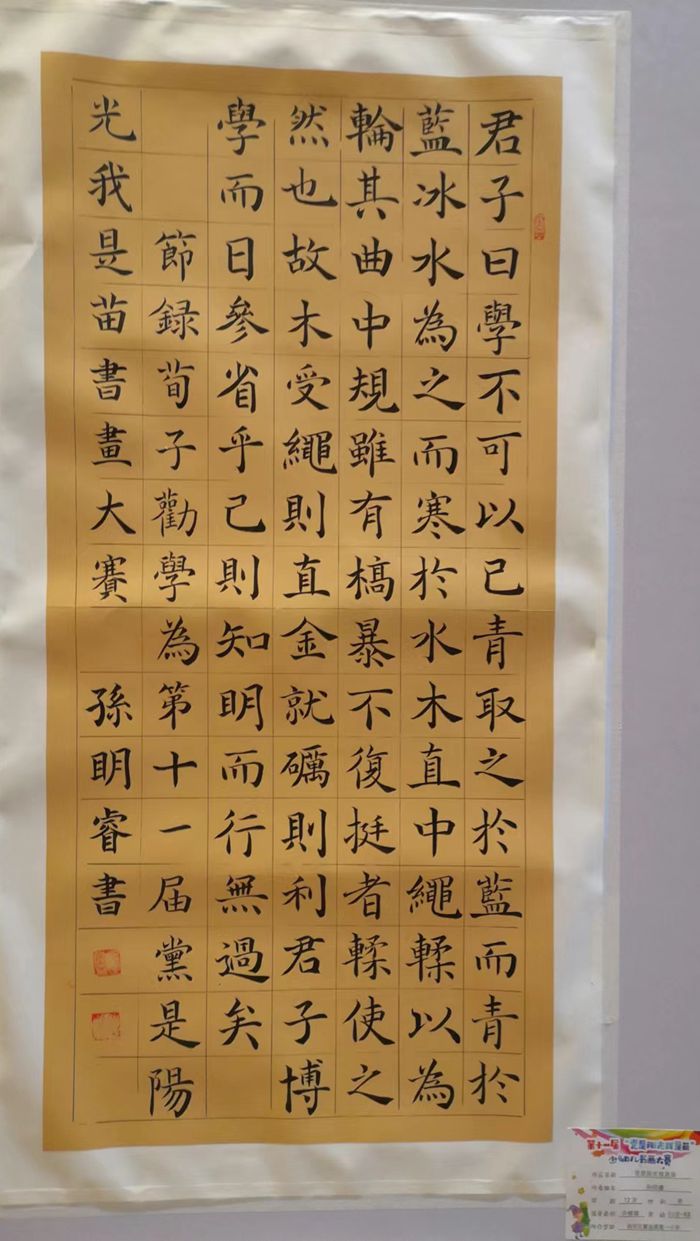 君子曰學不可以已青取之於藍而青於
藍冰水為之而寒於水木直中繩輮以為
輪其曲中規雖有槁暴不復挺者輮使之
然也故木受繩則直金就礪則利君子博
學而日參省乎己則知明而行無過矣
節録荀子勸學為第十一届黨是陽
光我是苗書畫大賽
孫明睿書
第十一届"党是阳光我是苗"